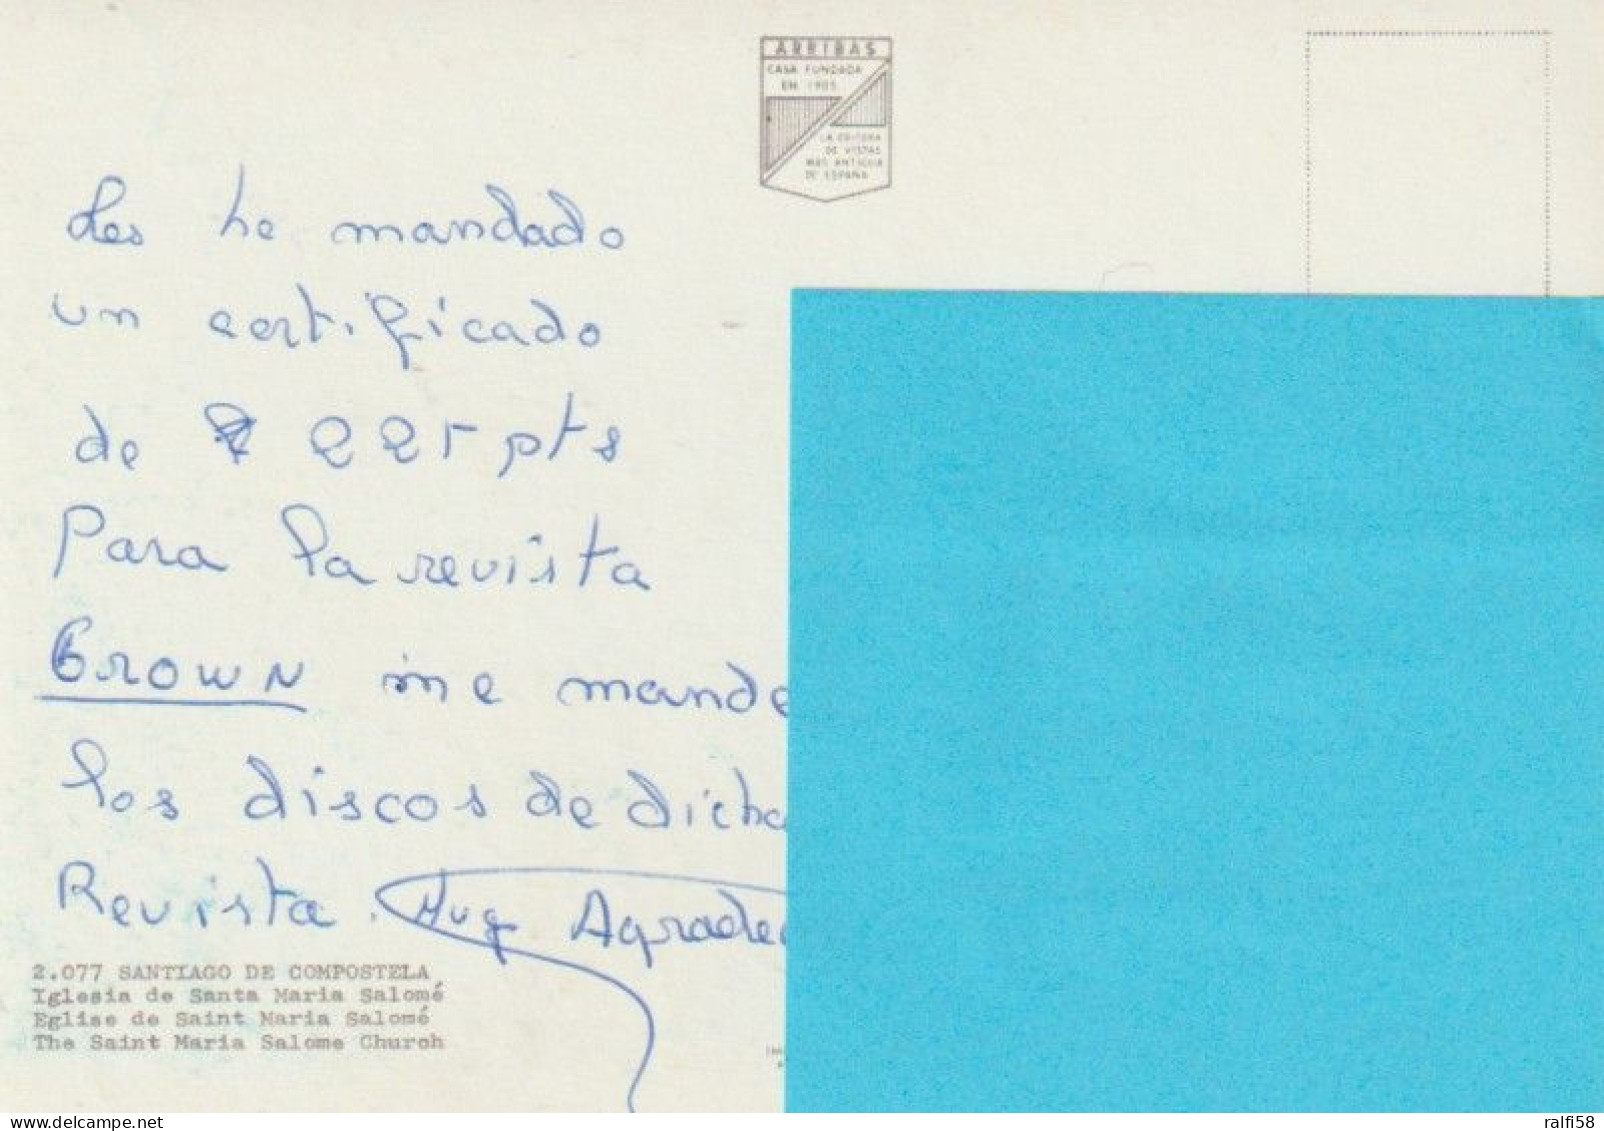 ARRIBAS
CASA FUNDADA
EN 1905
LA EDITORA
DE VISTAS
MAS ANTIGUA
DE ESPAÑA
Les he mandado
un certificado
de 225 pts
Para la revista
Crown me mande
los discos de dicha
Revista. Muy Agradec
2.077 SANTIAGO DE COMPOSTELA
Iglesia de Santa Maria Salomé
Eglise de Saint Maria Salomé
The Saint Maria Salome Church
delcampe.net
ralfi58